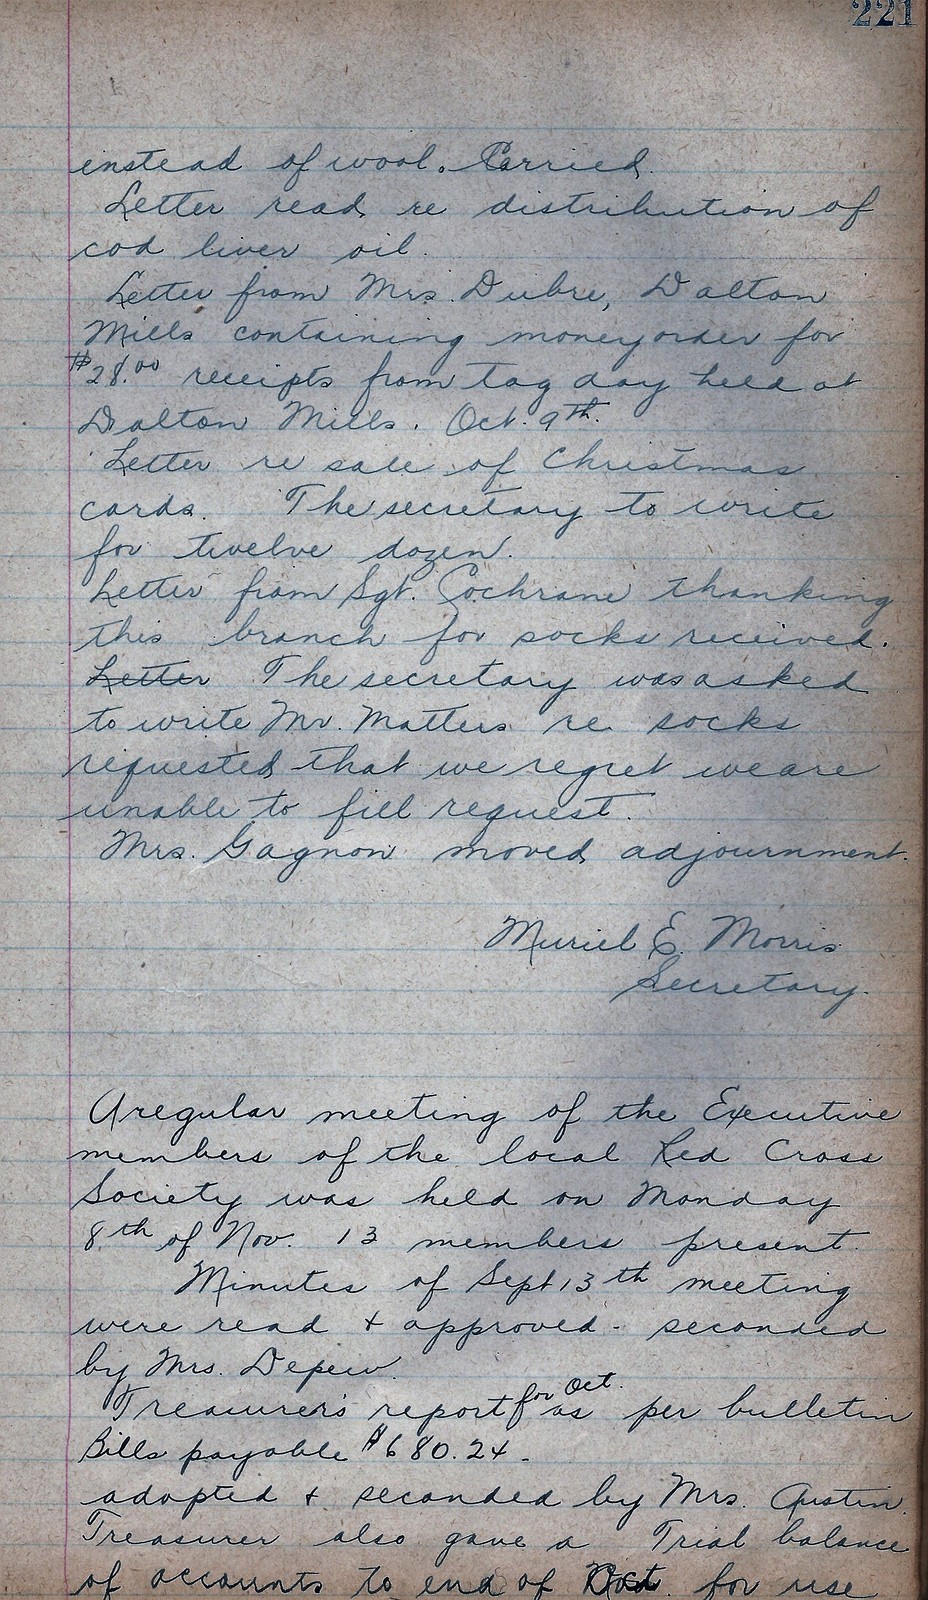 221
instead of wool. Carried.
Letter read re distribution of
cod liver oil.
Letter from Mrs. Dubre, Dalton
Mills containing moneyorder for
$28.00 receipts from tag day held at
Dalton Mills. Oct. 9th.
Letter re sale of Christmas
cards. The secretary to write
for twelve dozen.
Letter from Sgt. Cochrane thanking
this branch for socks received.
Letter The secretary was asked
to write Mr. Matters re socks
requested that we regret we are
unable to fill request.
Mrs. Gagnon moved adjournment.
Muriel E. Morris
Secretary.
A regular meeting of the Executive
members of the local Red Cross
Society was held on Monday
8th of Nov. 13 members present.
Minutes of Sept 13th meeting
were read + approved - seconded
by Mrs. Depew.
Treasurer's report for Oct. as per bulletin
Bills payable $680.24.
adopted + seconded by Mrs. Austin.
Treasurer also gave a Trial balance
of accounts to end of Oct. for use